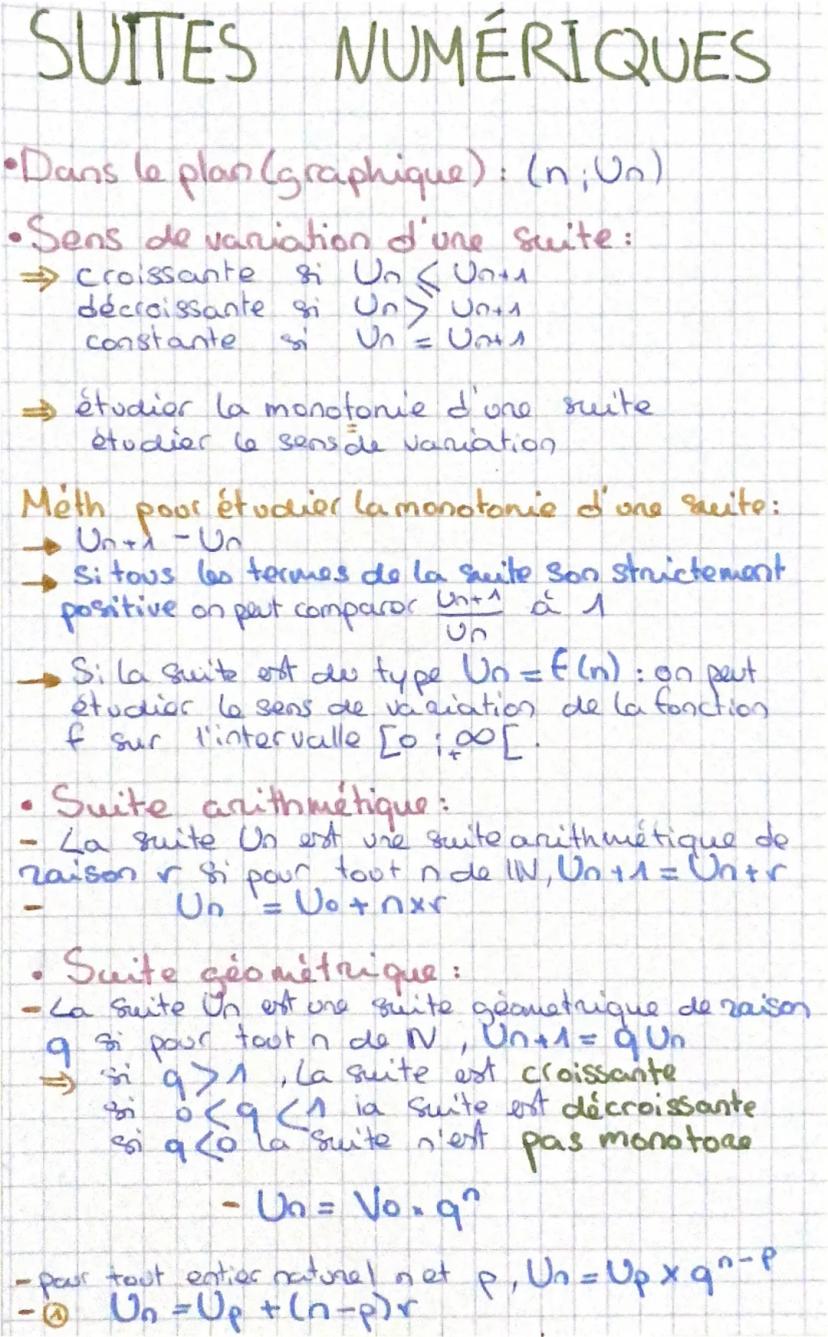 SUITES NUMÉRIQUES
• Dans le plan (graphique) : (n ; Un)
• Sens de variation d'une suite :
⇒ croissante si Un < Un+1
décroissante si Un > Un+1
constante si Un = Un+1
⇒ étudier la monotonie d'une suite
=
étudier le sens de variation
Méth pour étudier la monotonie d'une suite :
→ Un+1 - Un
→ Si tous les termes de la suite son strictement
positive on peut comparer Un+1/Un à 1
→ Si la suite est du type Un = f(n) : on peut
étudier le sens de variation de la fonction
f sur l'intervalle [0 ; +∞[.
• Suite arithmétique :
- La suite Un est une suite arithmétique de
raison r si pour tout n de IN, Un+1 = Un+r
- Un = U0 + n×r
• Suite géométrique :
- La suite Un est une suite géometrique de raison
q si pour tout n de IN, Un+1 = qUn
⇒ si q > 1, la suite est croissante
si 0<q<1 la suite est décroissante
si q<0 la suite n'est pas monotone
- Un = V0 × qⁿ
- pour tout entier naturel n et p, Un = Up × qⁿ⁻ᵖ
- ① Un = Up + (n-p)r